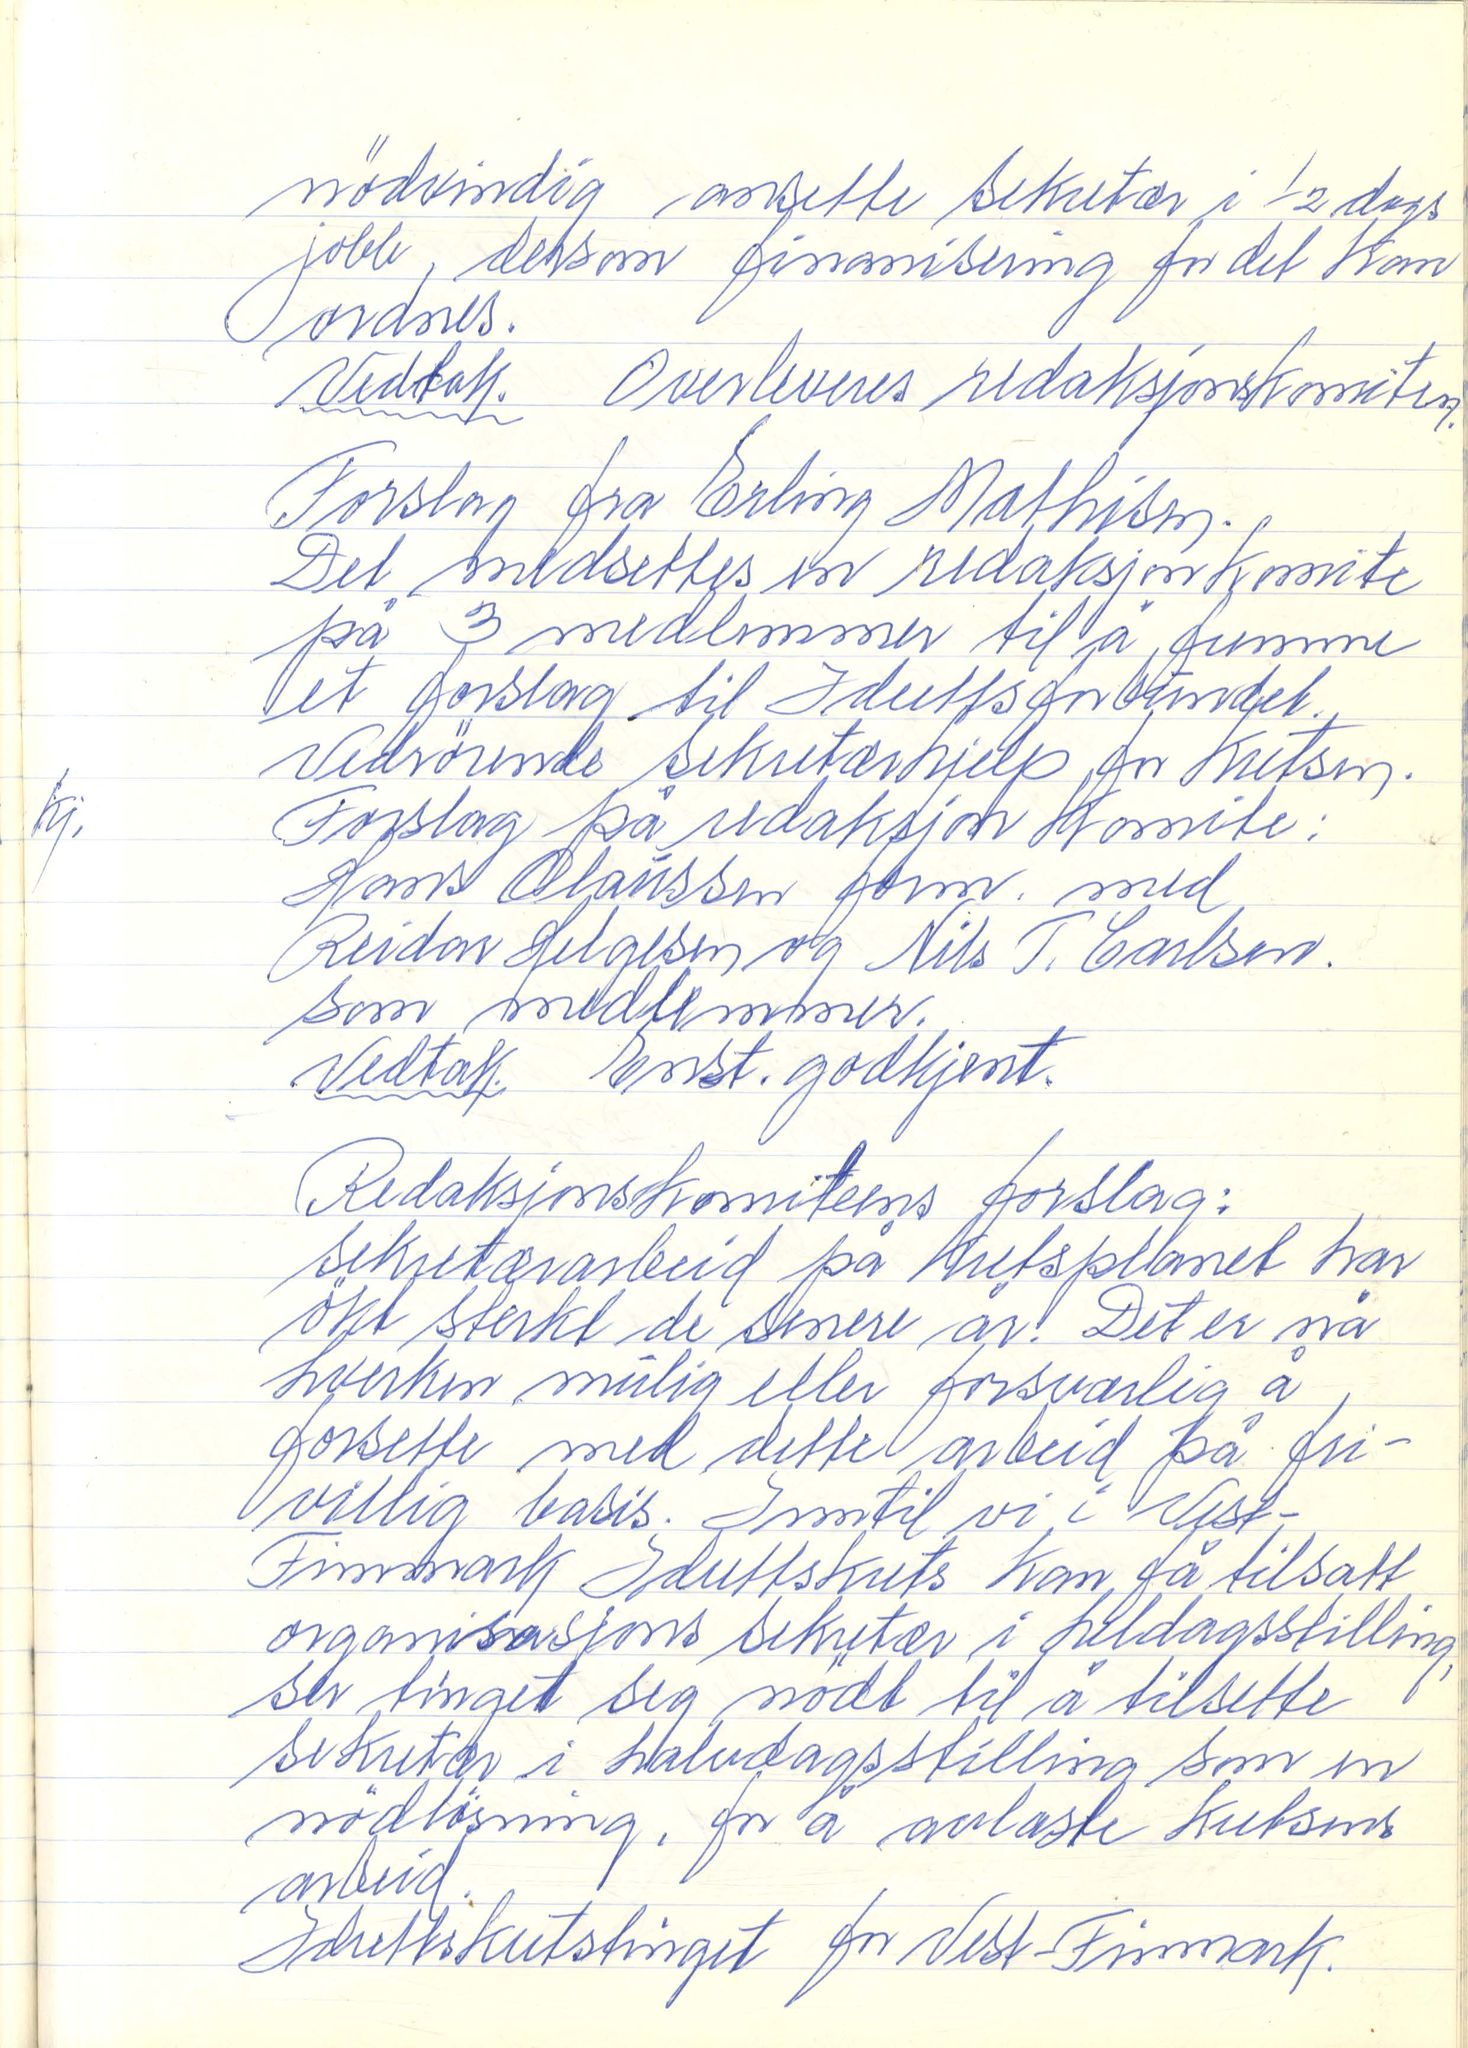 nödvindig ansette sekretær i 1/2 dags
jobb, dersom finansisering for det kan
ordnes.
Vedtak. Overleveres redaksjonskomiten.
Forslag fra Erling Mathisen.
Det nedsettes en redaksjonkomite
på 3 medlemmer til å fremme
et forslag til Idrettsforbundet.
Vedrörende sekretærhjelp for kretsen.
Forslag på redaksjon komite:
kj.
Hans Olaussen form. med
Reidar Helgesen og Nils T. Carlsen.
som medlemmer.
Vedtak. Enst. godkjent.
Redaksjonskomiteens forslag:
Sekretærarbeid på kretsplanet har
ökt sterkt de senere år! Det er nå
hverken mulig eller forsvarlig å
forsette med dette arbeid på fri-
villig basis. Inntil vi i Vest-
Finnmark Idrettskrets kan få tilsatt
organisasjons sekretær i heldagsstilling,
ser tinget seg nödt til å tilsette
sekretær i halvdagsstilling som en
nödlösning, for å avlaste kretsens
arbeid.
Idrettskretstinget for Vest-Finnmark.